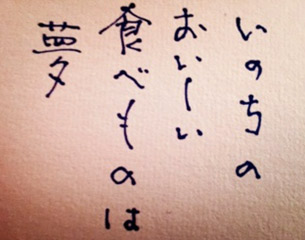 いのちの
おいしい
食べものは
夢